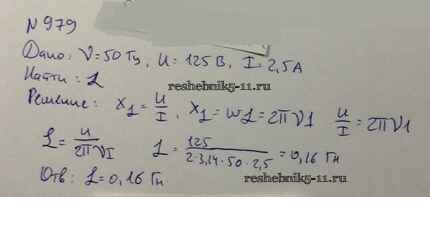 N 979
Дано: ν=50 Гц, u=125 В, I=2,5 А
Найти: L
reshebnik5-11.ru
Решение: X_L = u/I, X_L = ωL = 2πνL u/I = 2πνL
L = u/2πνI L = 125/2·3,14·50·2,5 = 0,16 Гн
reshebnik5-11.ru
Отв: L=0,16 Гн